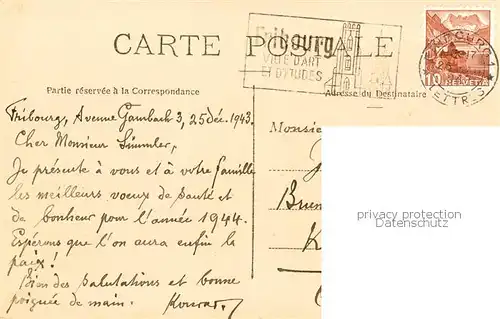 CARTE POSTALE
Fribourg
VILLE D'ART
ET D'ÉTUDES
10 HELVETIA
Partie réservée à la Correspondance
Adresse du Destinataire
Fribourg, Avenue Gambach 3, 25 déc. 1943.
Cher Monsieur Simmler,
Je présente à vous et à votre famille
les meilleurs voeux de santé et
de bonheur pour l'année 1944.
Espérons que l'on aura enfin la
paix!
Bien des salutations et bonne
poignée de main.
Monsie
privacy protection
Datenschutz